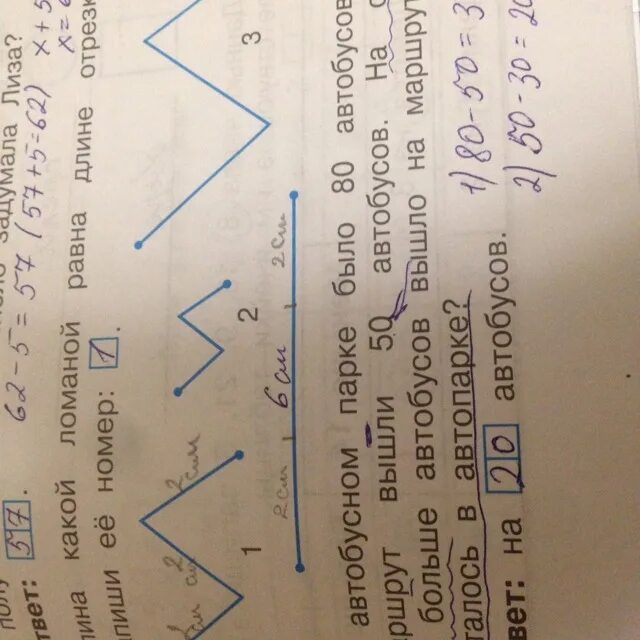 задумала Лиза?
62-5=57 (57+5=62) x+5
твет: 57.
какой ломаной равна длине отрезк
её номер: 1.
2 см
1 2 3
2 см 6 см 2 см
автобусном парке было 80 автобусов
вышли 50 автобусов. На
больше автобусов вышло на маршрут
талось в автопарке? 1) 80-50=3
вет: на 20 автобусов. 2) 50-30=20